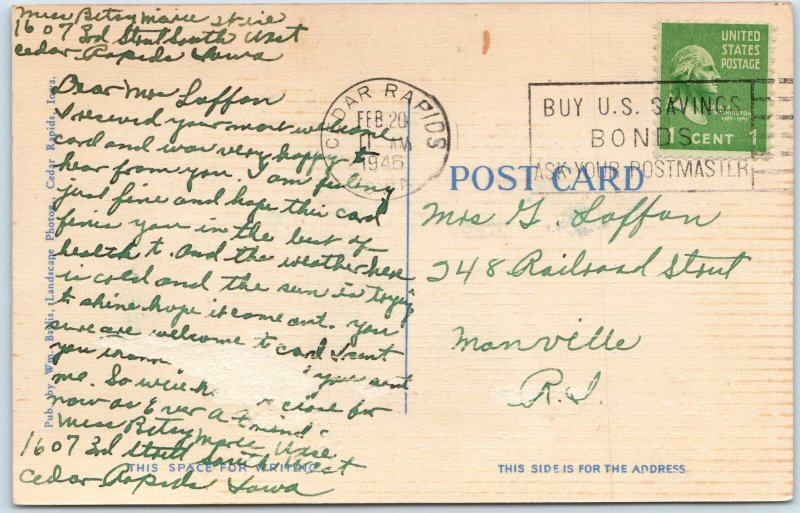 Miss Betsy Marie
1607 3rd Street South West
Cedar Rapids Iowa
Dear Mrs Laffan
I receved your most welcome
card and was very happy to
hear from you. I am feeling
just fine and hope this card
finds you in the best of
health to. And the weather here
is cold and the sun is trying
to shine hope it come out. You
sure are welcome to card I sent
you
you sent
me. So
close for
now as Ever a Friend
Miss Betsy Marie
1607 3rd Street South West
Cedar Rapids Iowa
Pub. by Wm. Baylis, (Landscape Photog., Cedar Rapids, Iowa.
THIS SPACE FOR WRITING
CEDAR RAPIDS
FEB 20
11 AM
1946
BUY U.S. SAVINGS
BONDS
ASK YOUR POSTMASTER
UNITED
STATES
POSTAGE
WASHINGTON
1 CENT 1
POST CARD
Mrs G. Laffan
248 Railroad Street
Manville
R.I.
THIS SIDE IS FOR THE ADDRESS